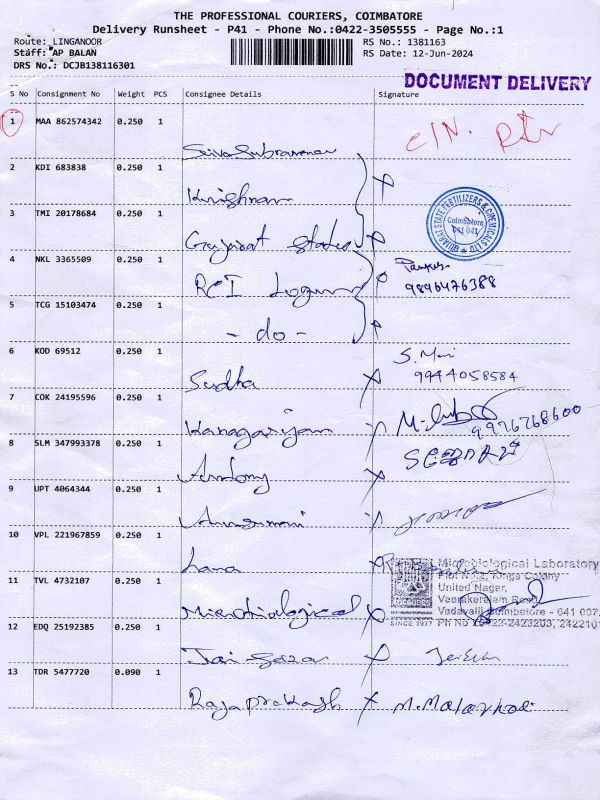 THE PROFESSIONAL COURIERS, COIMBATORE
Delivery Runsheet - P41 - Phone No.:0422-3505555 - Page No.:1
Route: LINGANOOR
RS No.: 1381163
Staff: AP BALAN
RS Date: 12-Jun-2024
DRS No.: DCJB138116301
DOCUMENT DELIVERY
S No Consignment No Weight PCS Consignee Details Signature
1 MAA 862574342 0.250 1
2 KDI 683838 0.250 1
Krishnan
3 TMI 20178684 0.250 1
Gujarat States
GUJARAT STATE FERTILIZERS & CHEMICALS LTD
Coimbatore
641 041
4 NKL 3365509 0.250 1
RCI
9896476388
5 TCG 15103474 0.250 1
- do -
6 KOD 69512 0.250 1
Sudha
S. Mani
9944058584
7 COK 24195596 0.250 1
9976768600
8 SLM 347993378 0.250 1
Antony
9 UPT 4064344 0.250 1
10 VPL 221967859 0.250 1
Lana
Microbiological Laboratory
Plot No.2, Kings Colony
11 TVL 4732107 0.250 1
United Nagar,
Veerakeralam Road,
Microbiological
Vadavalli Coimbatore - 641 007.
SINCE 1977
12 EDQ 25192385 0.250 1
13 TDR 5477720 0.090 1
Rajaprakash